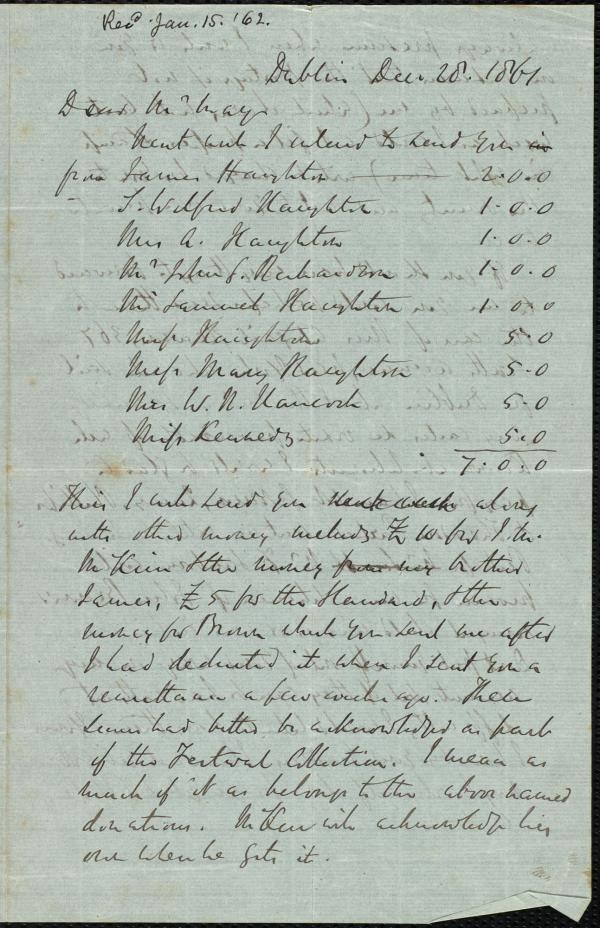 Recd. Jan. 15. '62.
Dublin Dec. 28. 1861
Dear Mr May
Next week I intend to send you in
from James Haughton 2.0.0
S. Wilfred Haughton 1.0.0
Mrs A. Haughton 1.0.0
Mr John G. Richardson 1.0.0
Mr Samuel Haughton 1.0.0
Miss Haughton 5.0
Miss Mary Haughton 5.0
Mrs W. N. Hancock 5.0
Miss Kennedy 5.0
7.0.0
This I will send you next week along
with other money including £10 for J. M.
McKim & the money from my brother
James, £5 for the Standard, & the
money for Brown which you sent me after
I had deducted it when I sent you a
remittance a few weeks ago. These
sums had better be acknowledged as part
of the Festival Collection. I mean as
much of it as belongs to the above named
donations. McKim will acknowledge his
own when he gets it.